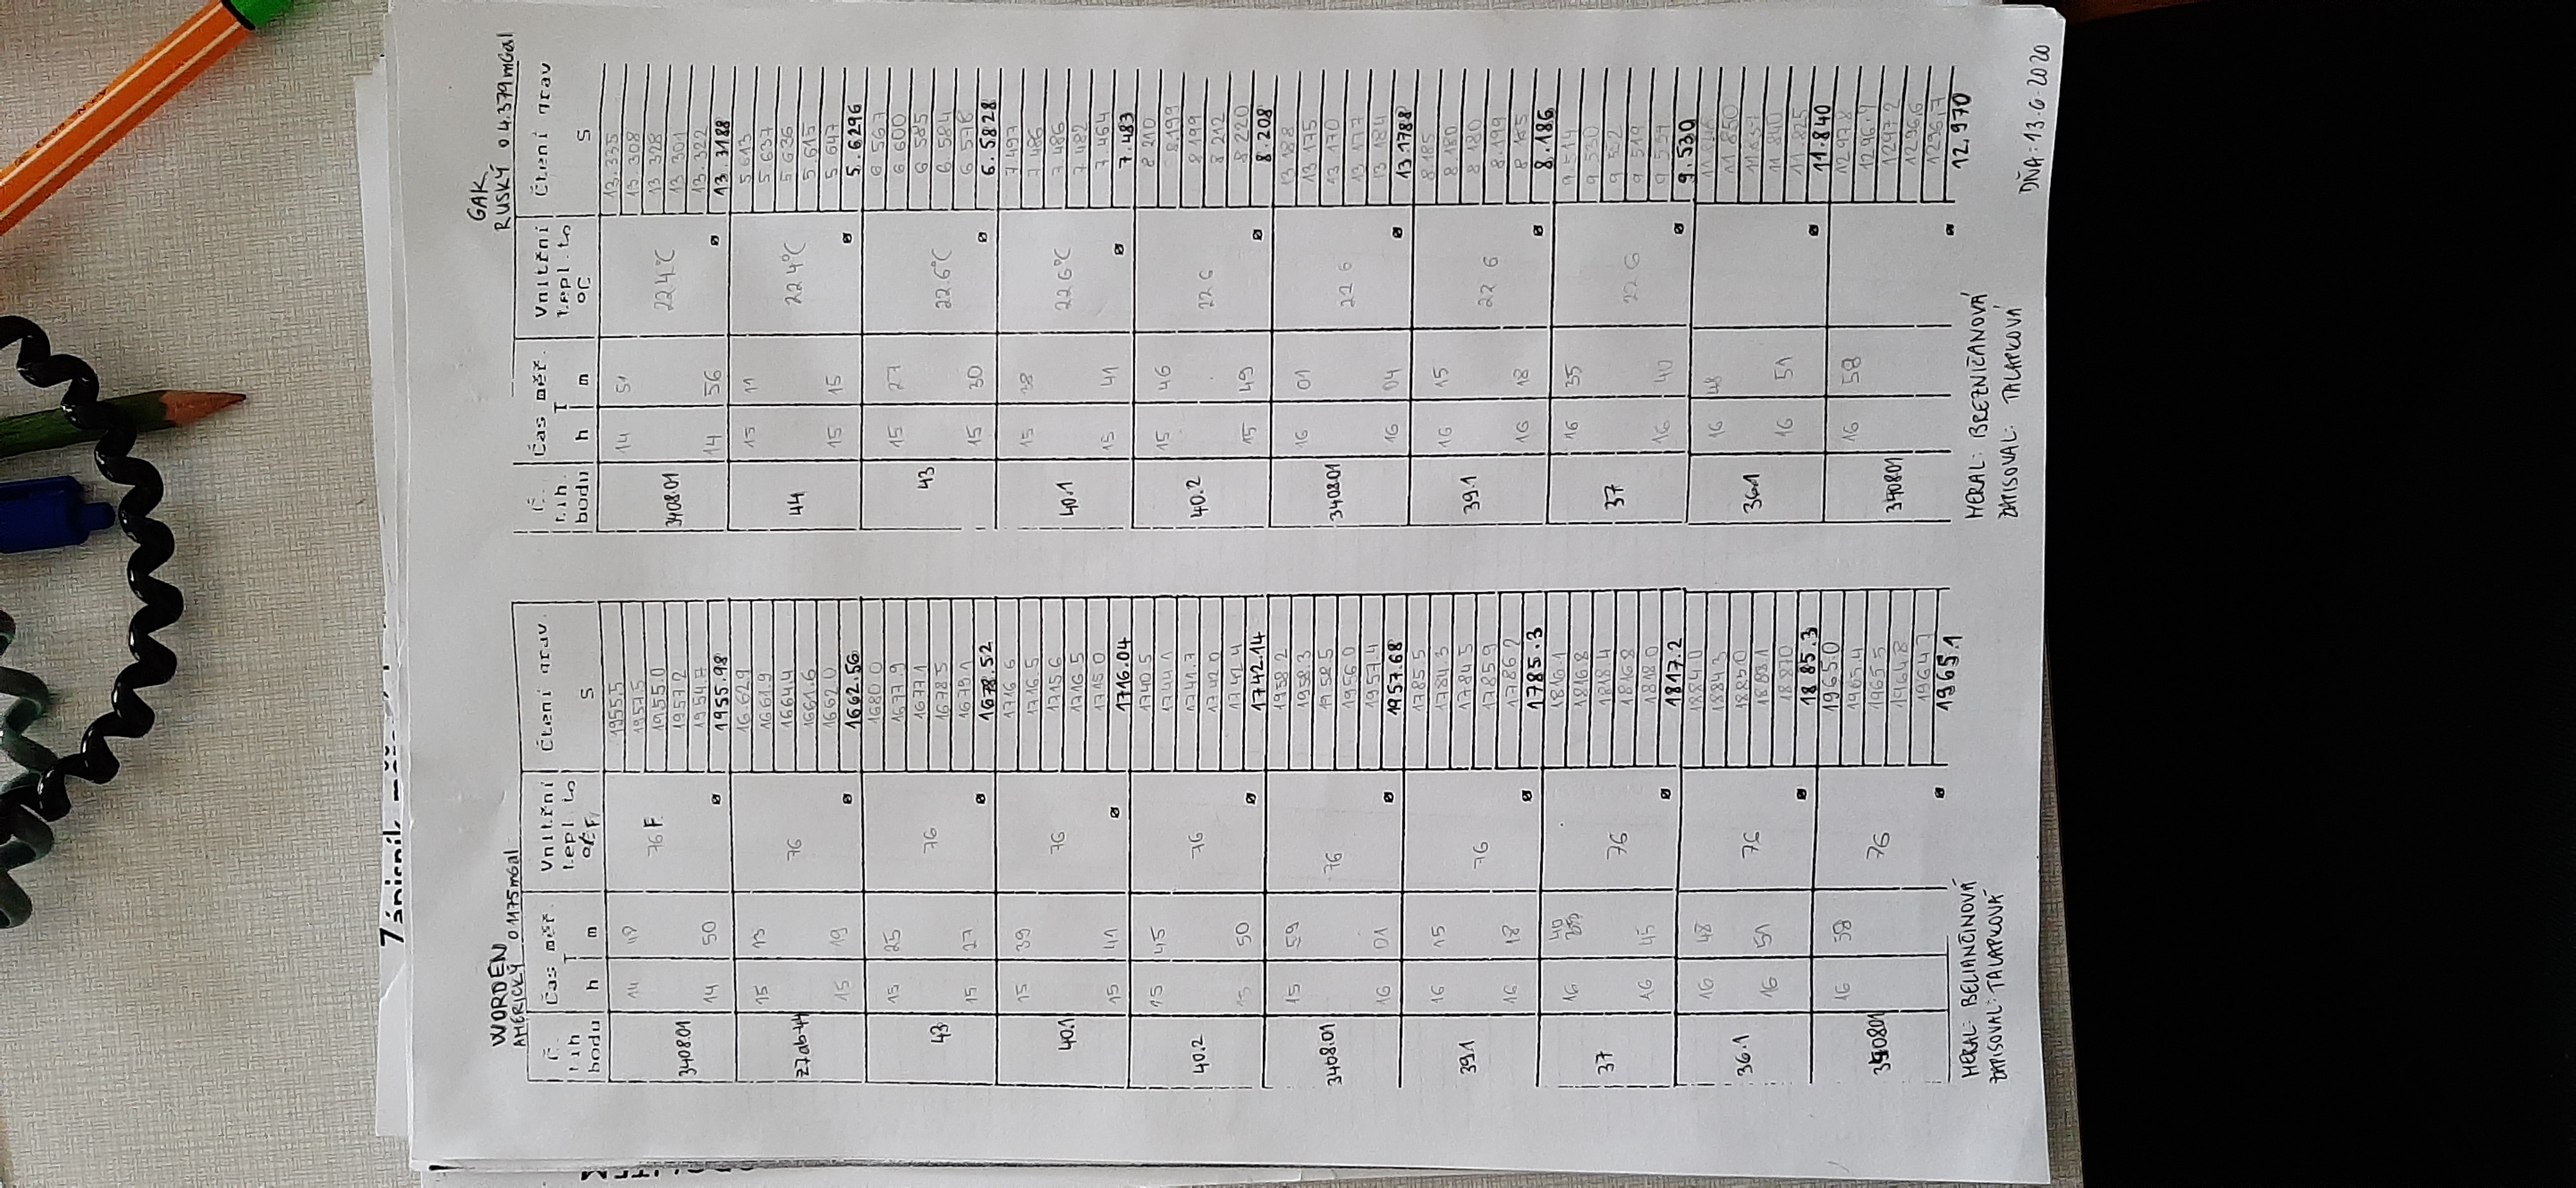 Zápisník
WORDEN
AMERICKÝ 0.1175mGal
Č. tih bodu Čas měř. T h m Vnitřní tepl. to °C F Čtení grav. S
3408.01 14 49 76 F. 1955.5
1957.5
1955.0
1957.2
1954.7
14 50 ø 1955.98
z7ab44 15 13 76 16.629
1661.9
1664.4
1661.6
1662.0
15 19 ø 1662.56
43 15 25 76 1680.0
1677.9
1677.1
1678.5
1679.1
15 27 ø 1678.52
40.1 15 39 76 1716.6
1716.5
1715.6
1716.5
1715.0
15 41 ø 1716.04
40.2 15 45 76 1740.5
1744.1
1741.7
1742.0
1742.4
15 50 ø 1742.14
3408.01 15 59 76 1958.2
1958.3
1958.5
1956.0
1957.4
16 01 ø 1957.68
39.1 16 15 76 1785.5
1784.3
1784.5
1785.9
1786.2
16 18 ø 1785.3
37 16 40 76 1816.1
1816.8
1818.4
1816.8
1818.0
16 45 ø 1817.2
36.1 16 48 76 1884.0
1884.3
1885.0
1883.1
1887.0
16 51 ø 1885.3
340801 16 58 76 1965.0
1965.4
1965.5
1964.8
1964.7
ø 1965.1
MERAL: BELIANČINOVÁ
ZAPISOVAL: TALAPKOVÁ
GAK
RUSKÝ 0 4.379mGal
Č. tih. bodu Čas měř. T h m Vnitřní tepl. to °C Čtení grav S
3408.01 14 51 22.4°C 13.335
13.308
13.328
13.301
13.322
14 56 ø 13.3188
44 15 11 22.4°C 5.613
5.637
5.636
5.615
5.647
15 15 ø 5.6296
43 15 27 22.6°C 6.567
6.600
6.585
6.584
6.578
15 30 ø 6.5828
40.1 15 38 22.6°C 7.497
7.486
7.486
7.482
7.464
15 41 ø 7.483
40.2 15 46 22.6 8.210
8.199
8.199
8.212
8.220
15 49 ø 8.208
3408.01 16 01 22.6 13.188
13.175
13.170
13.177
13.184
16 04 ø 13.1788
39.1 16 15 22.6 8.185
8.180
8.180
8.199
8.185
16 18 ø 8.186
37 16 35 22.6 9.514
9.530
9.532
9.519
16 40 ø 9.530
36.1 16 48
11.850
11.837
11.840
11.825
16 51 ø 11.840
340801 16 58 1297.8
1296.9
1297.2
1296,6
1296,7
ø 12,970
MERAL: BREZNIČANOVÁ
ZAPISOVAL: TALAPKOVÁ
DŇA: 13.6.2020